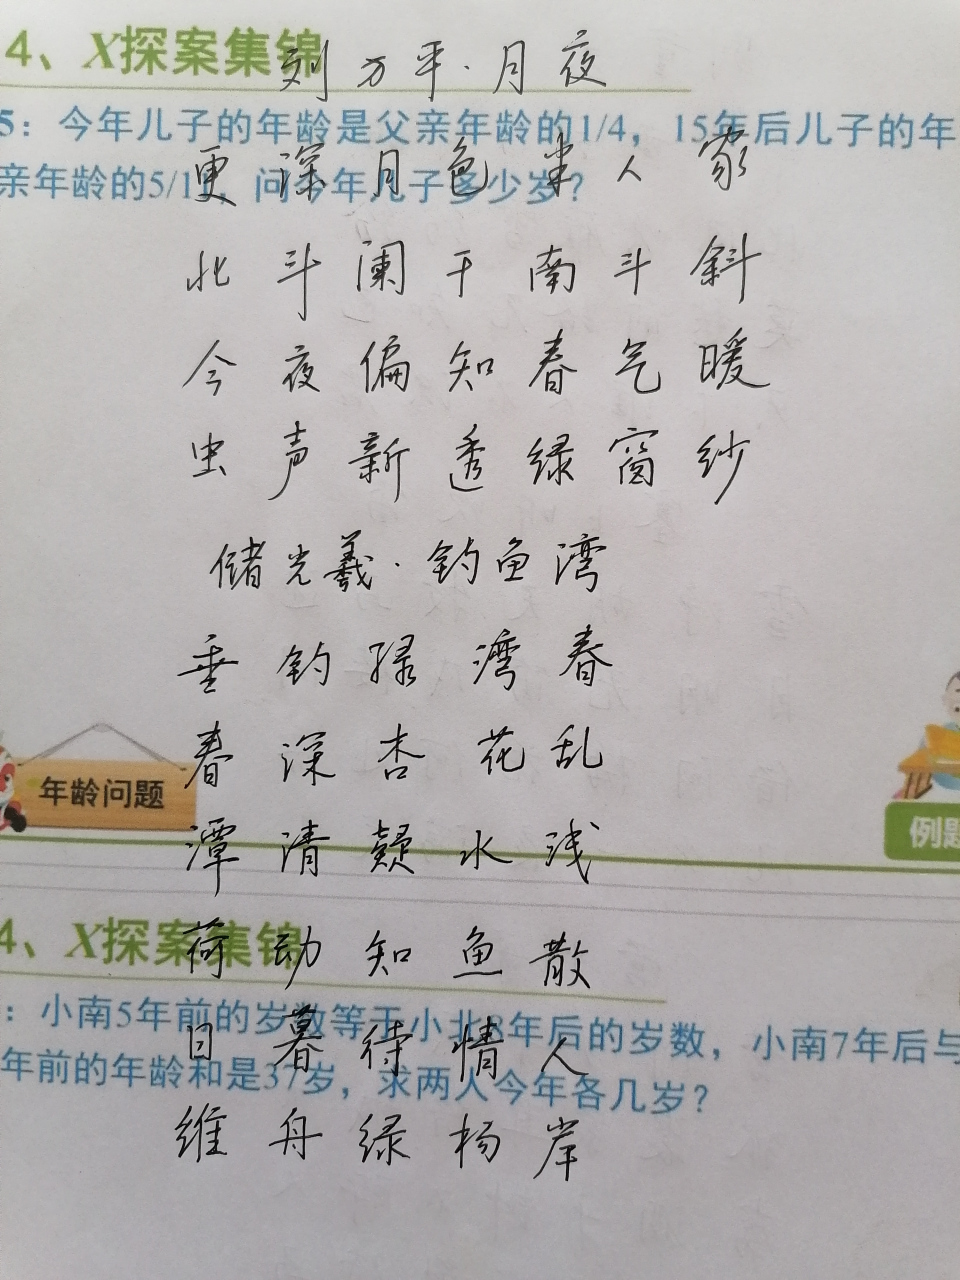 4、X探案集锦
刘方平·月夜
5：今年儿子的年龄是父亲年龄的1/4，15年后儿子的年
更深月色半人家
亲年龄的5/1，问今年儿子多少岁？
北斗阑干南斗斜
今夜偏知春气暖
虫声新透绿窗纱
储光羲·钓鱼湾
垂钓绿湾春
春深杏花乱
年龄问题
潭清疑水浅
例题
4、X探案集锦
荷动知鱼散
：小南5年前的岁数等于小北8年后的岁数，小南7年后与
日暮待情人
年前的年龄和是37岁，求两人今年各几岁？
维舟绿杨岸